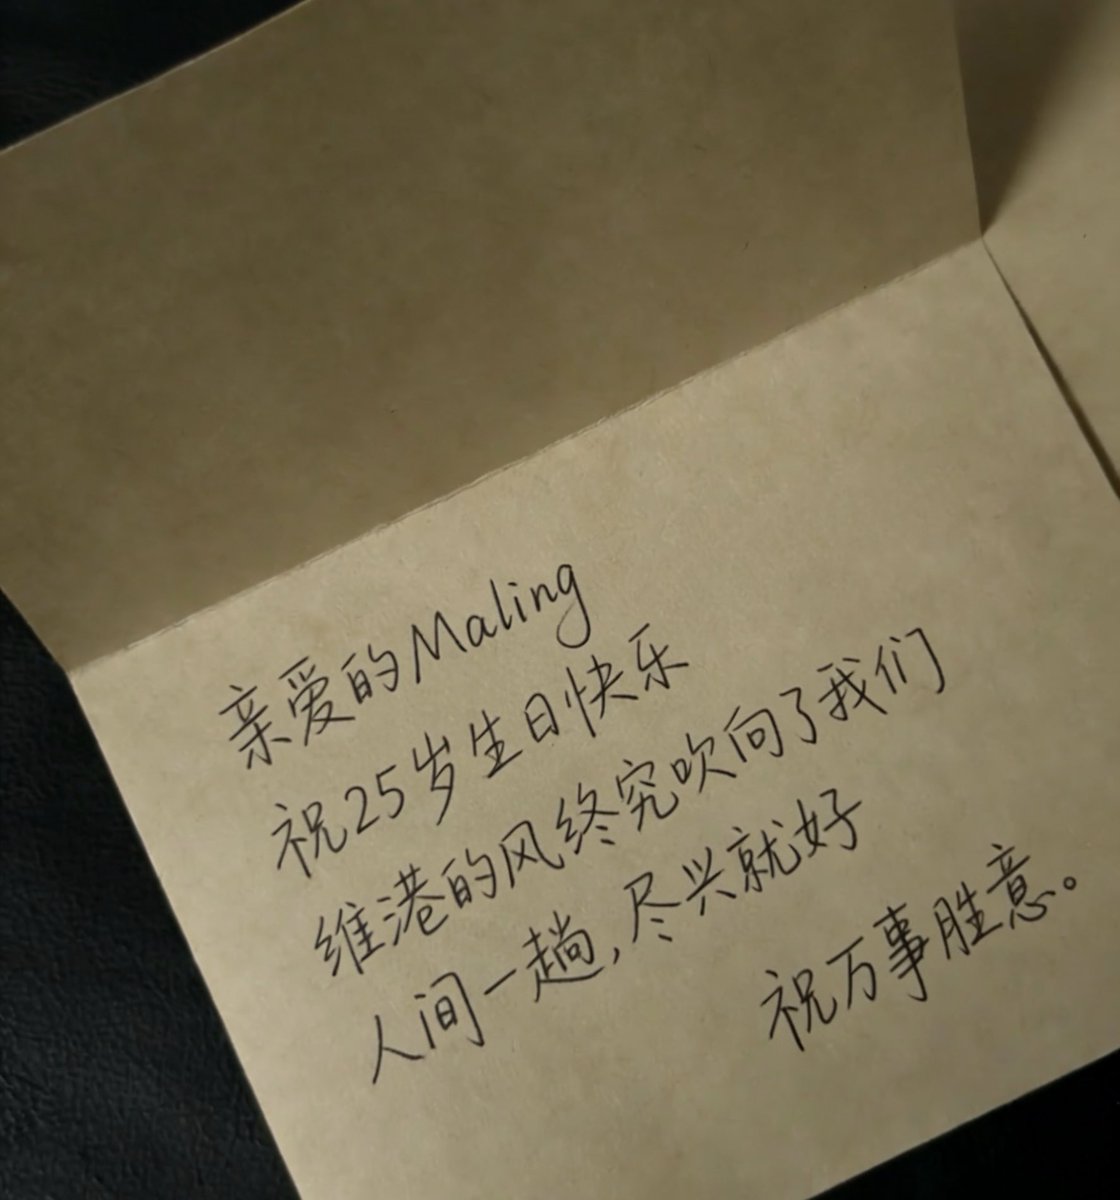 亲爱的Maling
祝25岁生日快乐
维港的风终究吹向了我们
人间一趟,尽兴就好
祝万事胜意。